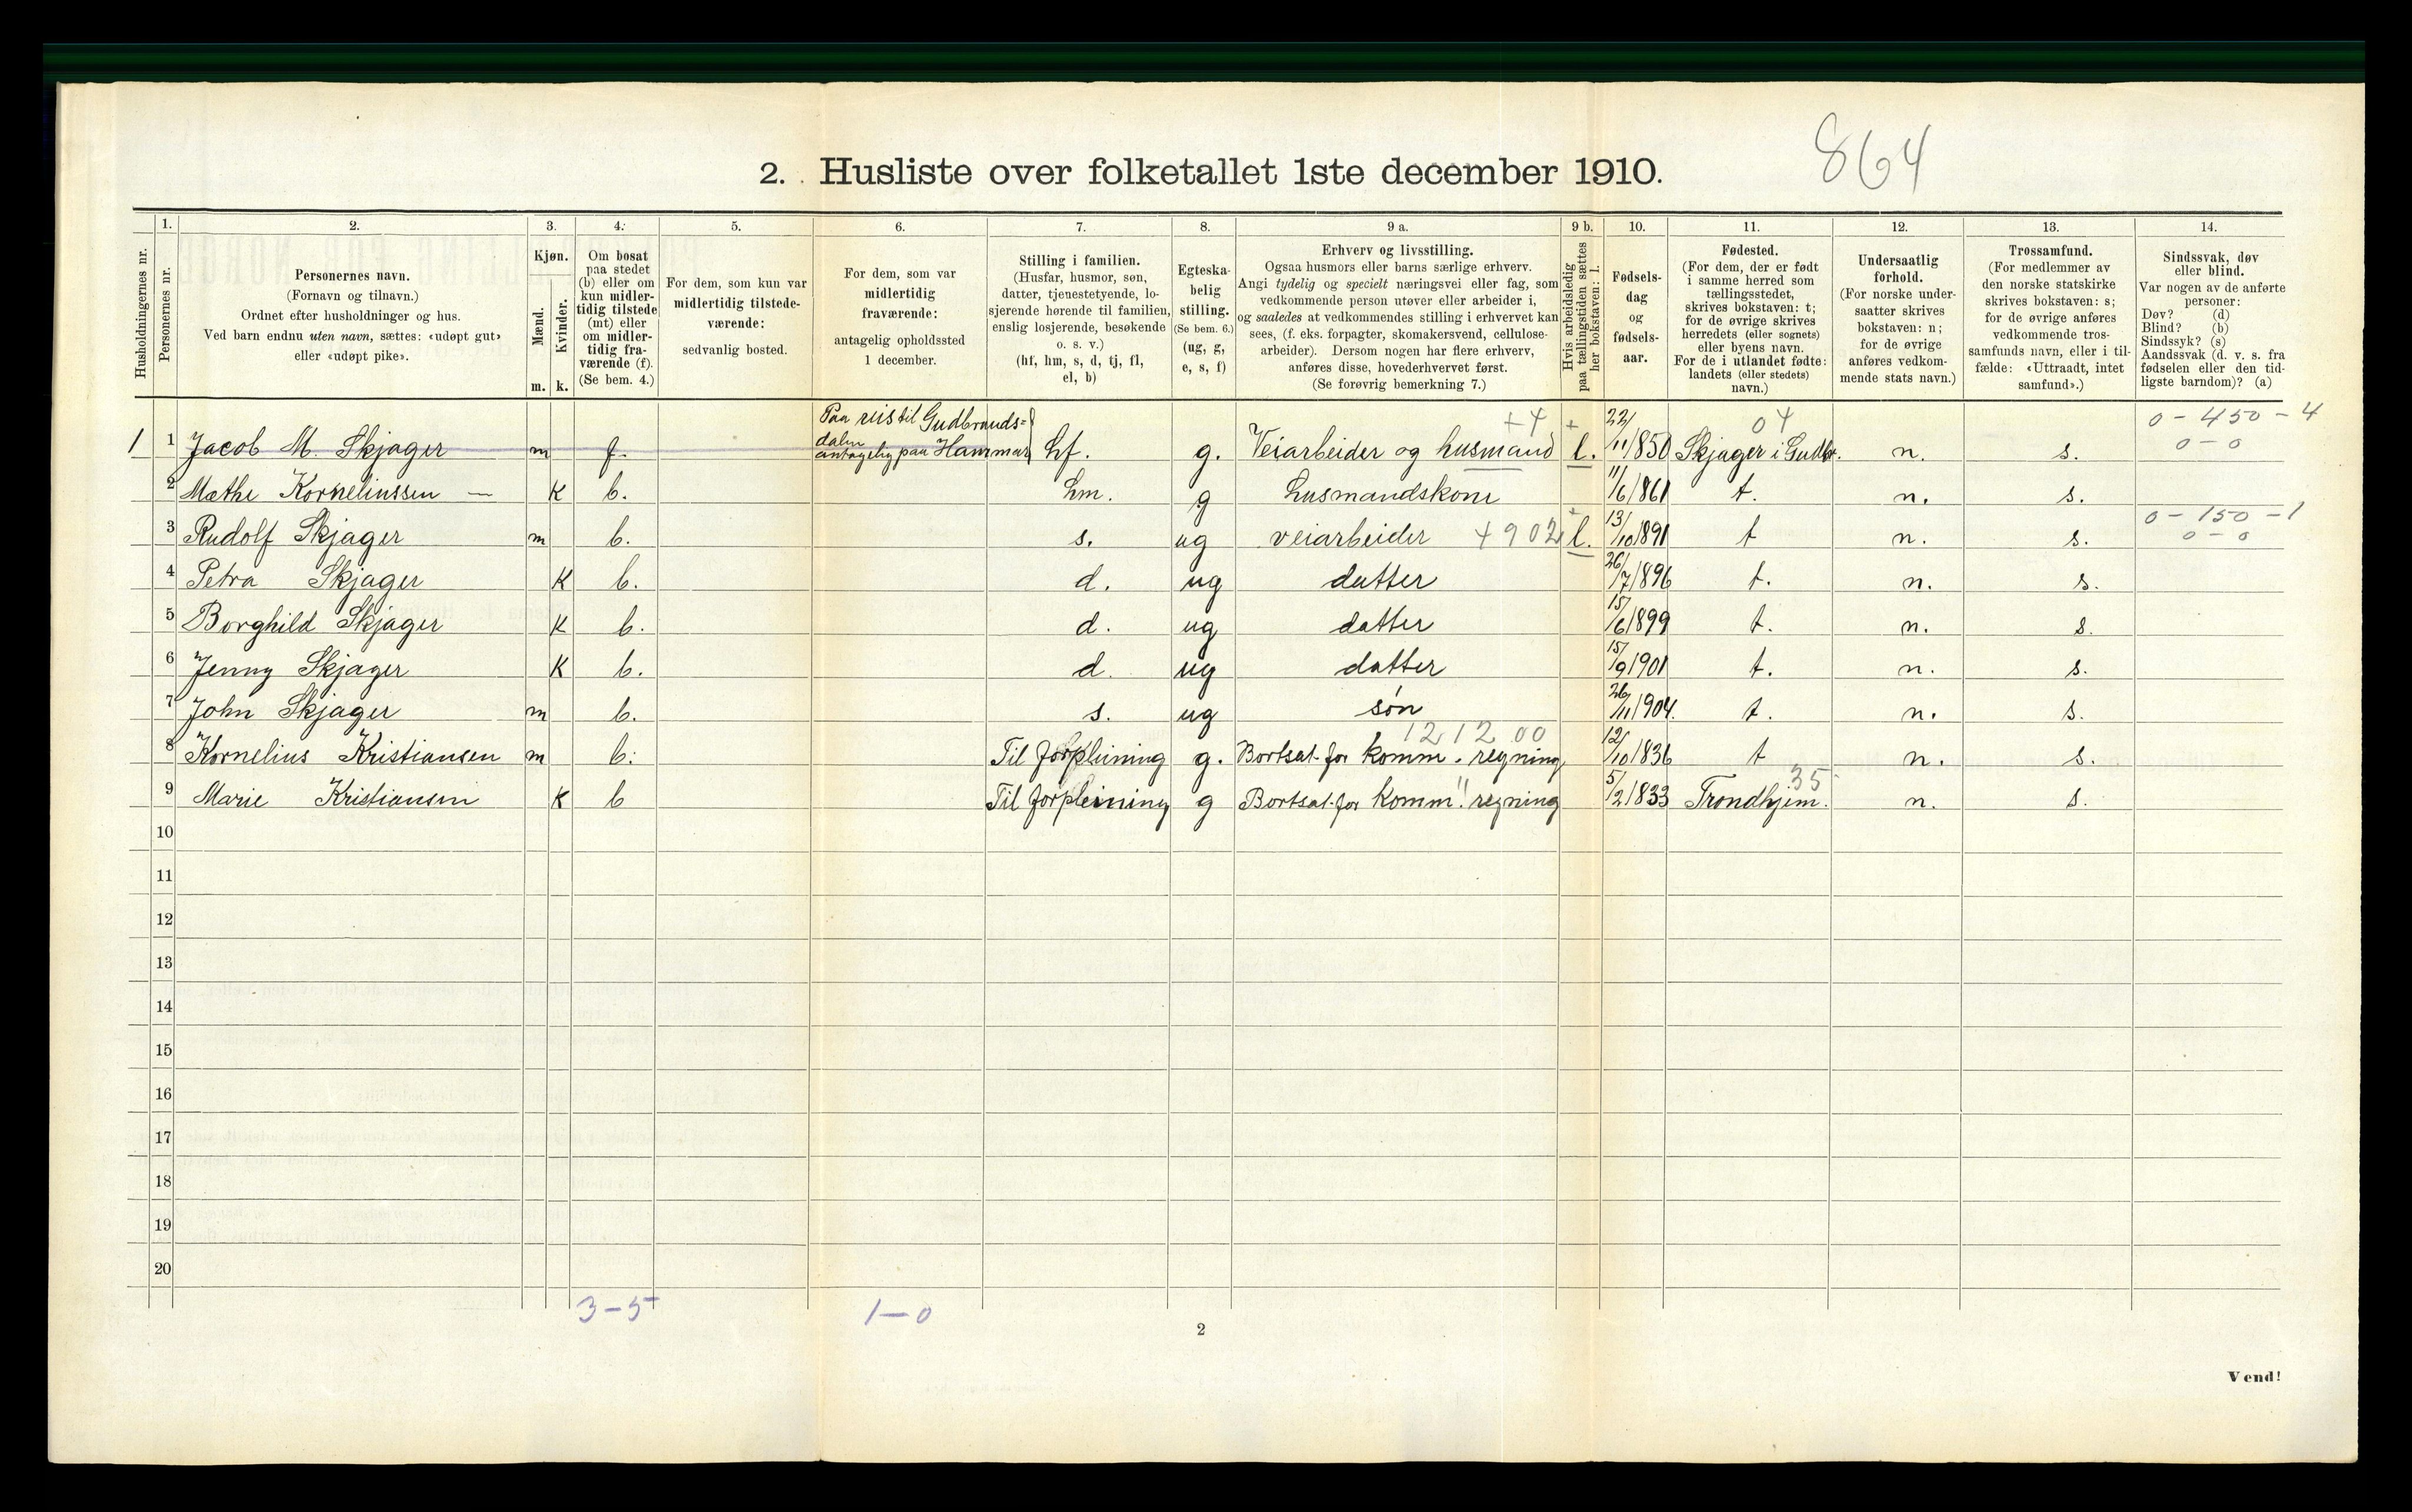 864
2. Husliste over folketallet 1ste december 1910.
Husholdningernes nr.
1.
Personernes nr.
2.
Personernes navn.
(Fornavn og tilnavn.)
Ordnet efter husholdninger og hus.
Ved barn endnu uten navn, sættes: «udøpt gut»
eller «udøpt pike».
3.
Kjøn.
Mænd.
Kvinder.
m. k.
4.
Om bosat
paa stedet
(b) eller om
kun midler-
tidig tilstede
(mt) eller
om midler-
tidig fra-
værende (f).
(Se bem. 4.)
5.
For dem, som kun var
midlertidig tilstede-
værende:
sedvanlig bosted.
6.
For dem, som var
midlertidig
fraværende:
antagelig opholdssted
1 december.
7.
Stilling i familien.
(Husfar, husmor, søn,
datter, tjenestetyende, lo-
sjerende hørende til familien,
enslig losjerende, besøkende
o. s. v.)
(hf, hm, s, d, tj, fl,
el, b)
8.
Egteska-
belig
stilling.
(Se bem. 6.)
(ug, g,
e, s, f)
9 a.
Erhverv og livsstilling.
Ogsaa husmors eller barns særlige erhverv.
Angi tydelig og specielt næringsvei eller fag, som
vedkommende person utøver eller arbeider i,
og saaledes at vedkommendes stilling i erhvervet kan
sees, (f. eks. forpagter, skomakersvend, cellulose-
arbeider). Dersom nogen har flere erhverv,
anføres disse, hovederhvervet først.
(Se forøvrig bemerkning 7.)
9 b.
Hvis arbeidsledig
paa tællingstiden sættes
her bokstaven: l.
10.
Fødsels-
dag
og
fødsels-
aar.
11.
Fødested.
(For dem, der er født
i samme herred som
tællingsstedet,
skrives bokstaven: t;
for de øvrige skrives
herredets (eller sognets)
eller byens navn.
For de i utlandet fødte:
landets (eller stedets)
navn.)
12.
Undersaatlig
forhold.
(For norske under-
saatter skrives
bokstaven: n;
for de øvrige
anføres vedkom-
mende stats navn.)
13.
Trossamfund.
(For medlemmer av
den norske statskirke
skrives bokstaven: s;
for de øvrige anføres
vedkommende tros-
samfunds navn, eller i til-
fælde: «Uttraadt, intet
samfund».)
14.
Sindssvak, døv
eller blind.
Var nogen av de anførte
personer:
Døv? (d)
Blind? (b)
Sindssyk? (s)
Aandssvak (d. v. s. fra
fødselen eller den tid-
ligste barndom)? (a)
Paa reis til Gudbrands=
dalen
antagelig paa Hammar
+4 + 04 0-450-4
0-0
1 1 Jacob M. Skjager m f. hf. g. Veiarbeider og husmand l. 22/11/850 Skjager i Gudbr. n. s.
2 Mæthe Korneliussen — K b. hm. g husmandskone 11/6/861 t. n. s.
0-150-1
0-0
3 Rudolf Skjager m b. s. ug veiarbeider +902 l. 13/10/891 t n. s.
4 Petra Skjager K b. d. ug datter 26/7/896 t. n. s.
5 Borghild Skjager K b. d. ug datter 15/6/899 t. n. s.
6 Jenny Skjager K b. d. ug datter 15/9/901 t. n. s.
7 John Skjager m b. s. ug søn 26/11/904. t. n. s.
121200
8 Kornelius Kristiansen m b: Til forpleining g. Bortsat for komm. regning 12/10/836 t n. s.
35
9 Marie Kristiansen K b Til forpleining g Bortsat for Komm. " regning 5/2/833 Trondhjem. n. s.
10
11
12
13
14
15
16
17
18
19
20
3-5 1-0
2
Vend!